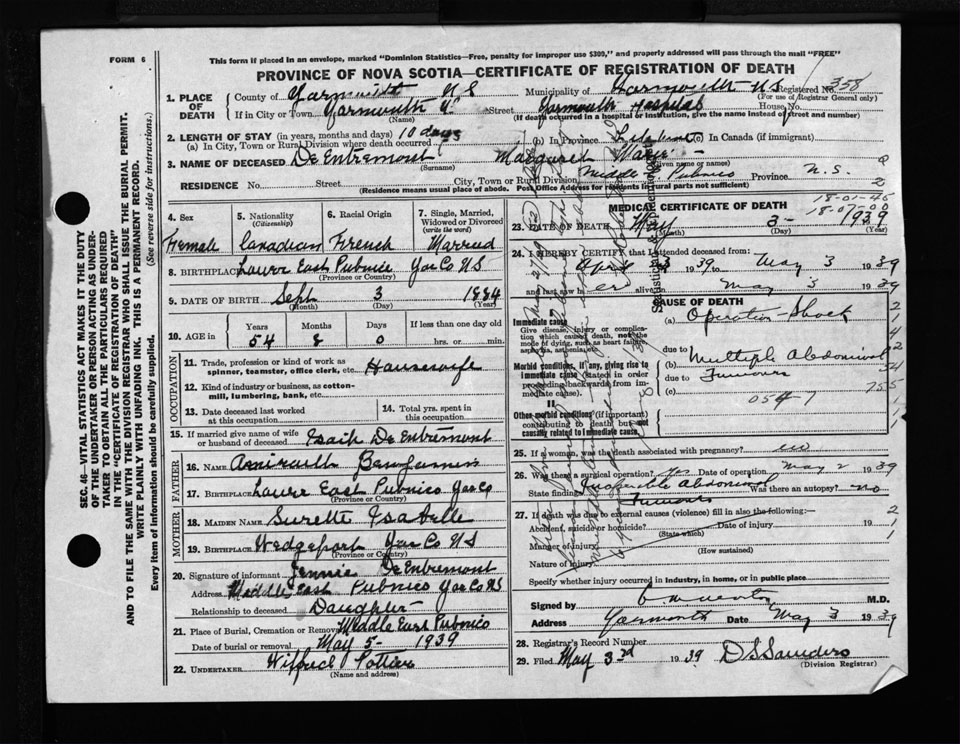 FORM 6
This form if placed in an envelope, marked "Dominion Statistics—Free, penalty for improper use $300," and properly addressed will pass through the mail "FREE"
PROVINCE OF NOVA SCOTIA—CERTIFICATE OF REGISTRATION OF DEATH
1. PLACE OF DEATH
County of Yarmouth N S Municipality of Yarmouth N S Registered No. 358
(For use of Registrar General only)
If in City or Town Yarmouth Street Yarmouth Hospital House No.
(Name) (If death occurred in a hospital or institution, give the name instead of street and number)
2. LENGTH OF STAY (in years, months and days)
(a) In City, Town or Rural Division where death occurred 10 days (b) in Province Lifetime (c) In Canada (if immigrant)
3. NAME OF DECEASED De Entremont Margaret
(Surname) (Given name or names)
RESIDENCE No. Street City, Town or Rural Division Middle E. Pubnico Province N. S.
(Residence means usual place of abode. Post Office Address for residents in rural parts not sufficient)
4. Sex
Female
5. Nationality
(Citizenship)
Canadian
6. Racial Origin
French
7. Single, Married, Widowed or Divorced
(write the word)
Married
8. BIRTHPLACE Lower East Pubnico Yar Co NS
(Province or Country)
9. DATE OF BIRTH Sept 3 1884
(Month) (Day) (Year)
10. AGE in
Years Months Days If less than one day old
54 8 0 hrs. or min.
OCCUPATION
11. Trade, profession or kind of work as spinner, teamster, office clerk, etc. Housewife
12. Kind of industry or business, as cotton-mill, lumbering, bank, etc.
13. Date deceased last worked at this occupation
14. Total yrs. spent in this occupation
15. If married give name of wife or husband of deceased Esaih De Entremont
FATHER
16. NAME Amirault Benjamin
17. BIRTHPLACE Lower East Pubnico Yar Co
(Province or Country)
MOTHER
18. MAIDEN NAME Surette Isabelle
19. BIRTHPLACE Wedgeport Yar Co NS
(Province or Country)
20. Signature of informant Jennie De Entremont
Address Middle East Pubnico Yar Co NS
Relationship to deceased Daughter
21. Place of Burial, Cremation or Removal Middle East Pubnico
Date of burial or removal May 5 - 1939
22. UNDERTAKER Wilfred Pottier
(Name and address)
18-01-45
18-07-00
MEDICAL CERTIFICATE OF DEATH
23. DATE OF DEATH May 3 - 1939
(Month) (Day) (Year)
24. I HEREBY CERTIFY that I attended deceased from:
1939 to May 3 1939
and last saw h er alive May 3 1939
CAUSE OF DEATH
Immediate cause
Give disease, injury or complication which caused death, not the mode of dying, such as heart failure, asphyxia, asthenia, etc.
(a) Operation Shock
due to
Morbid conditions, if any, giving rise to immediate cause (stated in order proceeding backwards from immediate cause).
(b) Multiple Abdominal Tumours
due to
(c)
054-7
II.
Other morbid conditions (if important) contributing to death but not causally related to immediate cause.
25. If a woman, was the death associated with pregnancy? no
26. Was there a surgical operation? Yes Date of operation May 2 1939
State findings Inoperable Abdominal Tumours Was there an autopsy? no
27. If death was due to external causes (violence) fill in also the following:—
Accident, suicide or homicide? Date of injury 19
(State which)
Manner of injury
(How sustained)
Nature of injury
Specify whether injury occurred in industry, in home, or in public place
Signed by M.D.
Address Yarmouth Date May 3 1939
28. Registrar's Record Number
29. Filed May 3rd 1939 D S Saunders
(Division Registrar)
SEC. 46—VITAL STATISTICS ACT MAKES IT THE DUTY OF THE UNDERTAKER OR PERSON ACTING AS UNDERTAKER TO OBTAIN ALL THE PARTICULARS REQUIRED IN THE "CERTIFICATE OF REGISTRATION OF DEATH" AND TO FILE THE SAME WITH THE DIVISION REGISTRAR WHO SHALL ISSUE THE BURIAL PERMIT.
WRITE PLAINLY WITH UNFADING INK. THIS IS A PERMANENT RECORD.
Every item of information should be carefully supplied. (See reverse side for instructions.)